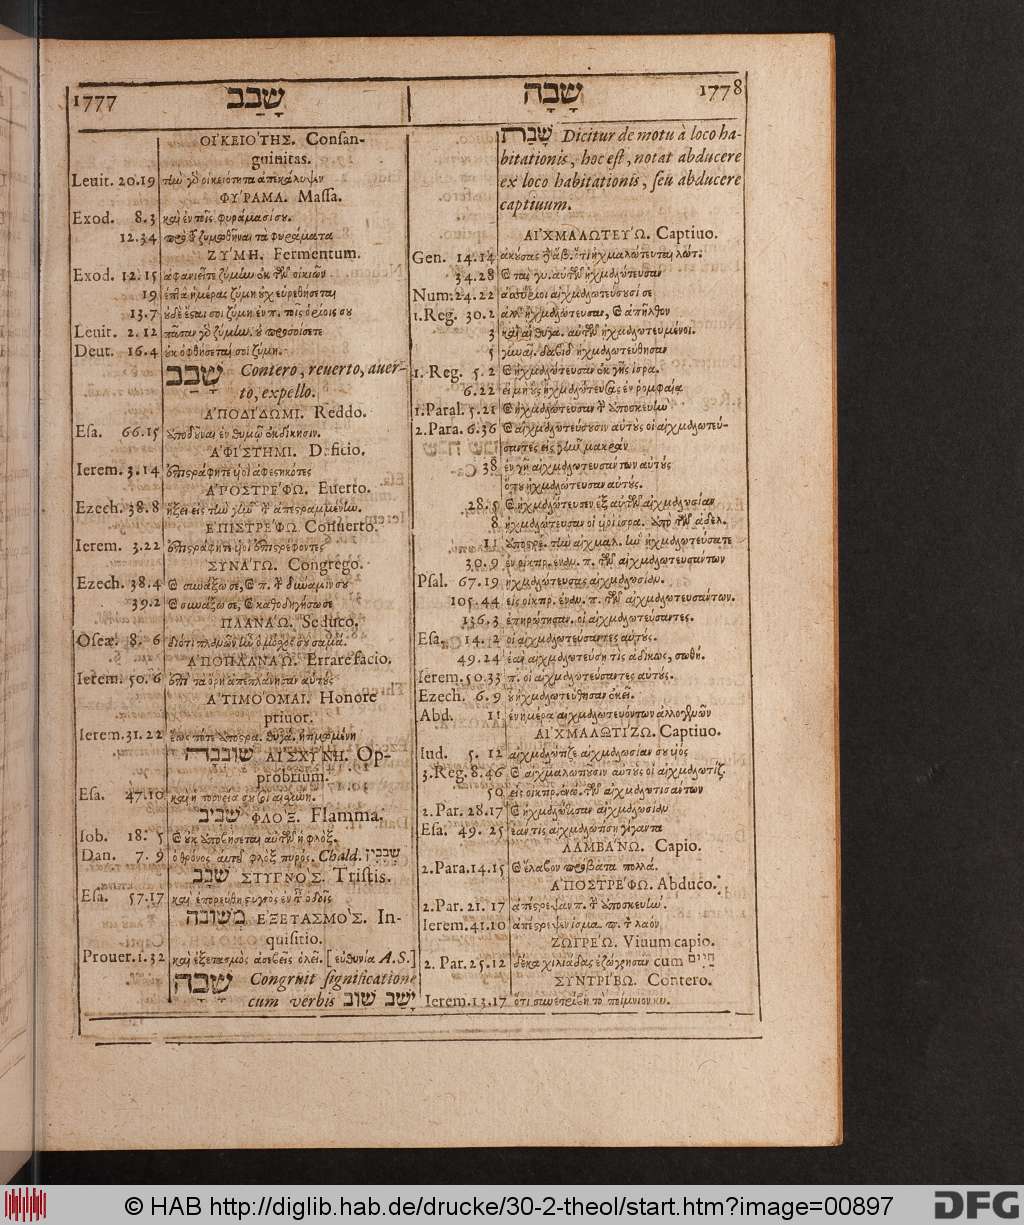 1777 שָׁבַב
ΟΙ᾿ΚΕΙΟ´ΤΗΣ. Consan-
guinitas.
Leuit. 20.19 τὴν γὸ οἰκειότητα ἀπεκάλυψεν
ΦΥ´ΡΑΜΑ. Massa.
Exod. 8.3 καὶ ἐν τοῖς φυράμασί σου.
12.34 πρὸ τ ζυμωθῆναι τὰ φυράματα
ΖΥ´ΜΗ. Fermentum.
Exod. 12.15 ἀφανιεῖτε ζύμην ἐκ τῶν οἰκιῶν
19 ἑπτὰ ἡμέρας ζύμη οὐχ εὑρεθήσεται
13.7 οὐδὲ ἔσται σοι ζύμη ἐν π. τοῖς ὁρίοις σου
Leuit. 2.12 πᾶσαν γὸ ζύμην. οὐ προσοίσετε
Deut. 16.4 οὐκ ὀφθήσεταί σοι ζύμη.
שָׁבַב Contero, reuerto, auer-
to, expello.
Α᾿ΠΟΔΙ´ΔΩΜΙ. Reddo.
Esa. 66.15 ἀποδοῦναι ἐν θυμῷ ἐκδίκησιν.
Α᾿ΦΙ´ΣΤΗΜΙ. Deficio.
Ierem. 3.14 ἐπιστράφητε υἱοὶ ἀφεστηκότες
Α᾿ΡΟΣΤΡΕ´ΦΩ. Euerto.
Ezech. 38.8 ἥξει εἰς τὴν γῆν τ ἀπεστραμμένην.
Ε᾿ΠΙΣΤΡΕ´ΦΩ Conuerto.
Ierem. 3.22 ἐπιστράφητε υἱοὶ ἐπιστρέφοντες
ΣΥΝΑ´ΓΩ. Congrego.
Ezech. 38.4 καὶ συνάξω σε, καὶ π. τ δύναμίν σου
39.2 καὶ συνάξω σε, καὶ καθοδηγήσω σε
ΠΛΑΝΑ´Ω. Seduco.
Oseæ. 8. 6
Α᾿ΠΟΠΛΑΝΑ´Ω. Errare facio.
Ierem. 50.6 ἐπὶ τὰ ὄρη ἀπεπλάνησαν αὐτοὺς
Α᾿ΤΙΜΟ´ΟΜΑΙ. Honore
priuor.
Ierem. 31.22 ἕως πότε ἀποστρα. θυγά. ἠτιμωμένη
שובבה ΑΙ᾿ΣΧΥ´ΝΗ. Op-
probrium.
Esa. 47.10 καὶ ἡ πονεία σου σοι αἰσχύνη.
שביב ΦΛΟ´Ξ. Flamma.
Iob. 18. 5 καὶ οὐκ ἀποβήσεται αὐτῶν ἡ φλόξ.
Dan. 7. 9 ὁ θρόνος αὐτοῦ φλὸξ πυρός. Chald. שבבין
שבב ΣΤΥΓΝΟ´Σ. Tristis.
Esa. 57.17 καὶ ἐπορεύθη στυγνὸς ἐν τ ὁδοῖς
משובה Ε᾿ΞΕΤΑΣΜΟ´Σ. In-
quisitio.
Prouer. 1.32 καὶ ἐξετασμὸς ἀσεβεῖς ὀλεῖ. [εὐθηνία A.S.]
שָׁבָה Congruit significatione
cum verbis שוב יָשַׁב
שָׁבָה 1778
שָׁבָה Dicitur de motu à loco ha-
bitationis, hoc est, notat abducere
ex loco habitationis, seu abducere
captiuum.
ΑΙ᾿ΧΜΑΛΩΤΕΥ´Ω. Captiuo.
Gen. 14.14 ἀκούσας δὲ ἄβ. ὅτι ᾐχμαλώτευται λώτ.
34.28 καὶ τὰς γυ. αὐτῶν ᾐχμαλώτευσαν
Num. 24.22 ἀσσύριοι αἰχμαλωτεύσουσί σε
1.Reg. 30.2 ἀλλ' ᾐχμαλώτευσαν, καὶ ἀπῆλθον
3 καὶ αἱ θυγα. αὐτῶν ᾐχμαλωτευμένοι.
5 γυναῖ. δαβὶδ ᾐχμαλωτεύθησαν
1. Reg. 5.2 καὶ ᾐχμαλώτευσαν ἐκ γῆς ἰσρα.
6.22 εἰ μὴ οὓς ᾐχμαλώτευσας ἐν ῥομφαίᾳ
1.Paral. 5.21 καὶ ᾐχμαλώτευσαν τ ἀποσκευὴν
2.Para. 6.36 καὶ αἰχμαλωτεύσουσιν αὐτοὺς οἱ αἰχμαλωτεύ-
σαντες εἰς γῆν μακρὰν
38 ἐν γῇ αἰχμαλωτευσάντων αὐτοὺς
ὅπου ᾐχμαλώτευσαν αὐτούς.
28.5 καὶ ᾐχμαλώτευσεν ἐξ αὐτῶν αἰχμαλωσίαν
8 ᾐχμαλώτευσαν οἱ υἱοὶ ἰσρα. ἀπὸ τῶν ἀδελ.
11 ἀποστρέ. τὴν αἰχμαλ. ἣν ᾐχμαλωτεύσατε
30.9 ἐν οἰκτιρ. ἐνδν. π. τῶν αἰχμαλωτευσάντων
Psal. 67.19 ᾐχμαλώτευσας αἰχμαλωσίαν.
105.44 εἰς οἰκτιρ. ἐνδν. π. τῶν αἰχμαλωτευσάντων.
136.3 ἐπηρώτησαν. οἱ αἰχμαλωτεύσαντες.
Esa. 14. 2 οἱ αἰχμαλωτεύσαντες αὐτούς.
49.24 ἐὰν αἰχμαλωτεύσῃ τὶς ἀδίκως, σωθή.
Ierem. 50.33 π. οἱ αἰχμαλωτεύσαντες αὐτούς.
Ezech. 6.9 οὗ ᾐχμαλωτεύθησαν ἐκεῖ.
Abd. 11 ἐν ἡμέρα αἰχμαλωτευόντων ἀλλογενῶν
ΑΙ᾿ΧΜΑΛΩΤΙ´ΖΩ. Captiuo.
Iud. 5. 12 αἰχμαλώτιζε αἰχμαλωσίαν σου υἱὸς
3.Reg. 8.46 καὶ αἰχμαλωτιοῦσιν αὐτοὺς οἱ αἰχμαλωτίζ.
50 εἰς οἰκτιρ. ἐνώ. τῶν αἰχμαλωτισάντων
2. Par. 28.17 καὶ ᾐχμαλώτισαν αἰχμαλωσίαν
Esa. 49. 25 ἐάν τις αἰχμαλωτίσῃ γίγαντα
ΛΑΜΒΑ´ΝΩ. Capio.
2.Para. 14.15 καὶ ἔλαβον πρόβατα πολλά.
Α᾿ΠΟΣΤΡΕ´ΦΩ. Abduco.
2.Par. 21. 17 ἀπέστρεψαν π. τ ἀποσκευήν.
Ierem. 41.10 ἀπέστρεψεν ἰσμα. π. τ λαὸν
ΖΩΓΡΕ´Ω. Viuum capio.
2. Par. 25.12 δέκα χιλιάδας ἐζώγρησαν cum חַיִּים
ΣΥΝΤΡΙ´ΒΩ. Contero.
Ierem. 13.17 ὅτι συνετρίβη τὸ ποίμνιον κυ.
© HAB http://diglib.hab.de/drucke/30-2-theol/start.htm?image=00897
DFG